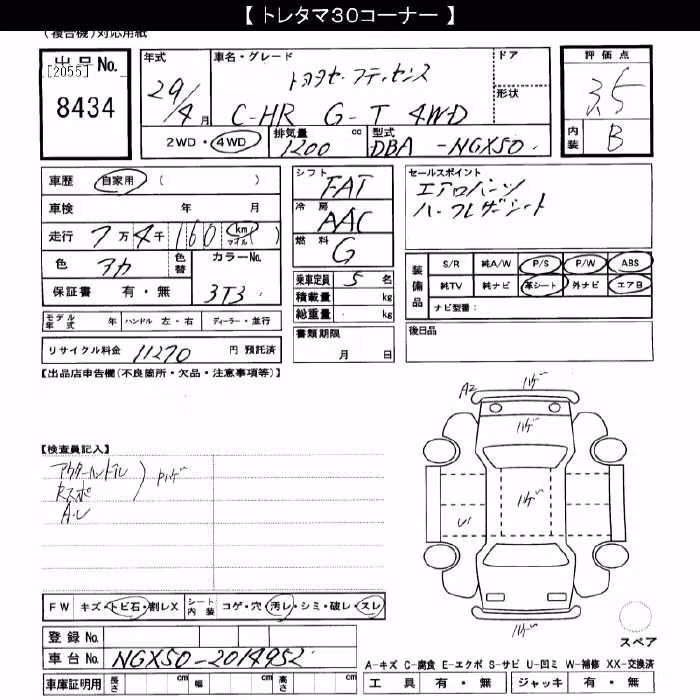 【 トレタマ30コーナー 】
(複合機)対応用紙
出品No. [2055] 8434
年式 29/4月
車名・グレード トヨタセーフティセンス
C-HR G-T 4WD
ドア
形状
評価点 3.5
内装 B
2WD・4WD
排気量 1200 cc
型式 DBA-NGX50
車歴 自家用 ( )
車検 年 月
走行 7万4千160 (km マイル)
色 アカ 色替
カラーNo. 3T3
保証書 有・無
シフト FAT
冷房 AAC
燃料 G
乗車定員 5 名
積載量 kg
総重量 kg
書類期限
月 日
セールスポイント
エアロパンツ
ハーフレザーシート
装備品
S/R 純A/W P/S P/W ABS
純TV 純ナビ 革シート 外ナビ エアB
ナビ型番:
後日品
モデル年式 年 ハンドル 左・右 ディーラー・並行
リサイクル料金 11270 円 預託済
【出品店申告欄(不良箇所・欠品・注意事項等)】
【検査員記入】
A2
ハゲ
ハゲ
ハゲ
U1
ハゲ
スペア
FW キズ・トビ石・割レX シート内装 コゲ・穴・汚レ・シミ・破レ・スレ
登録No.
車台No. NGX50-2014952
車庫証明用 長さ cm 幅 cm 高さ cm
A-キズ C-腐食 E-エクボ S-サビ U-凹ミ W-補修 XX-交換済
工具 有・無 ジャッキ 有・無